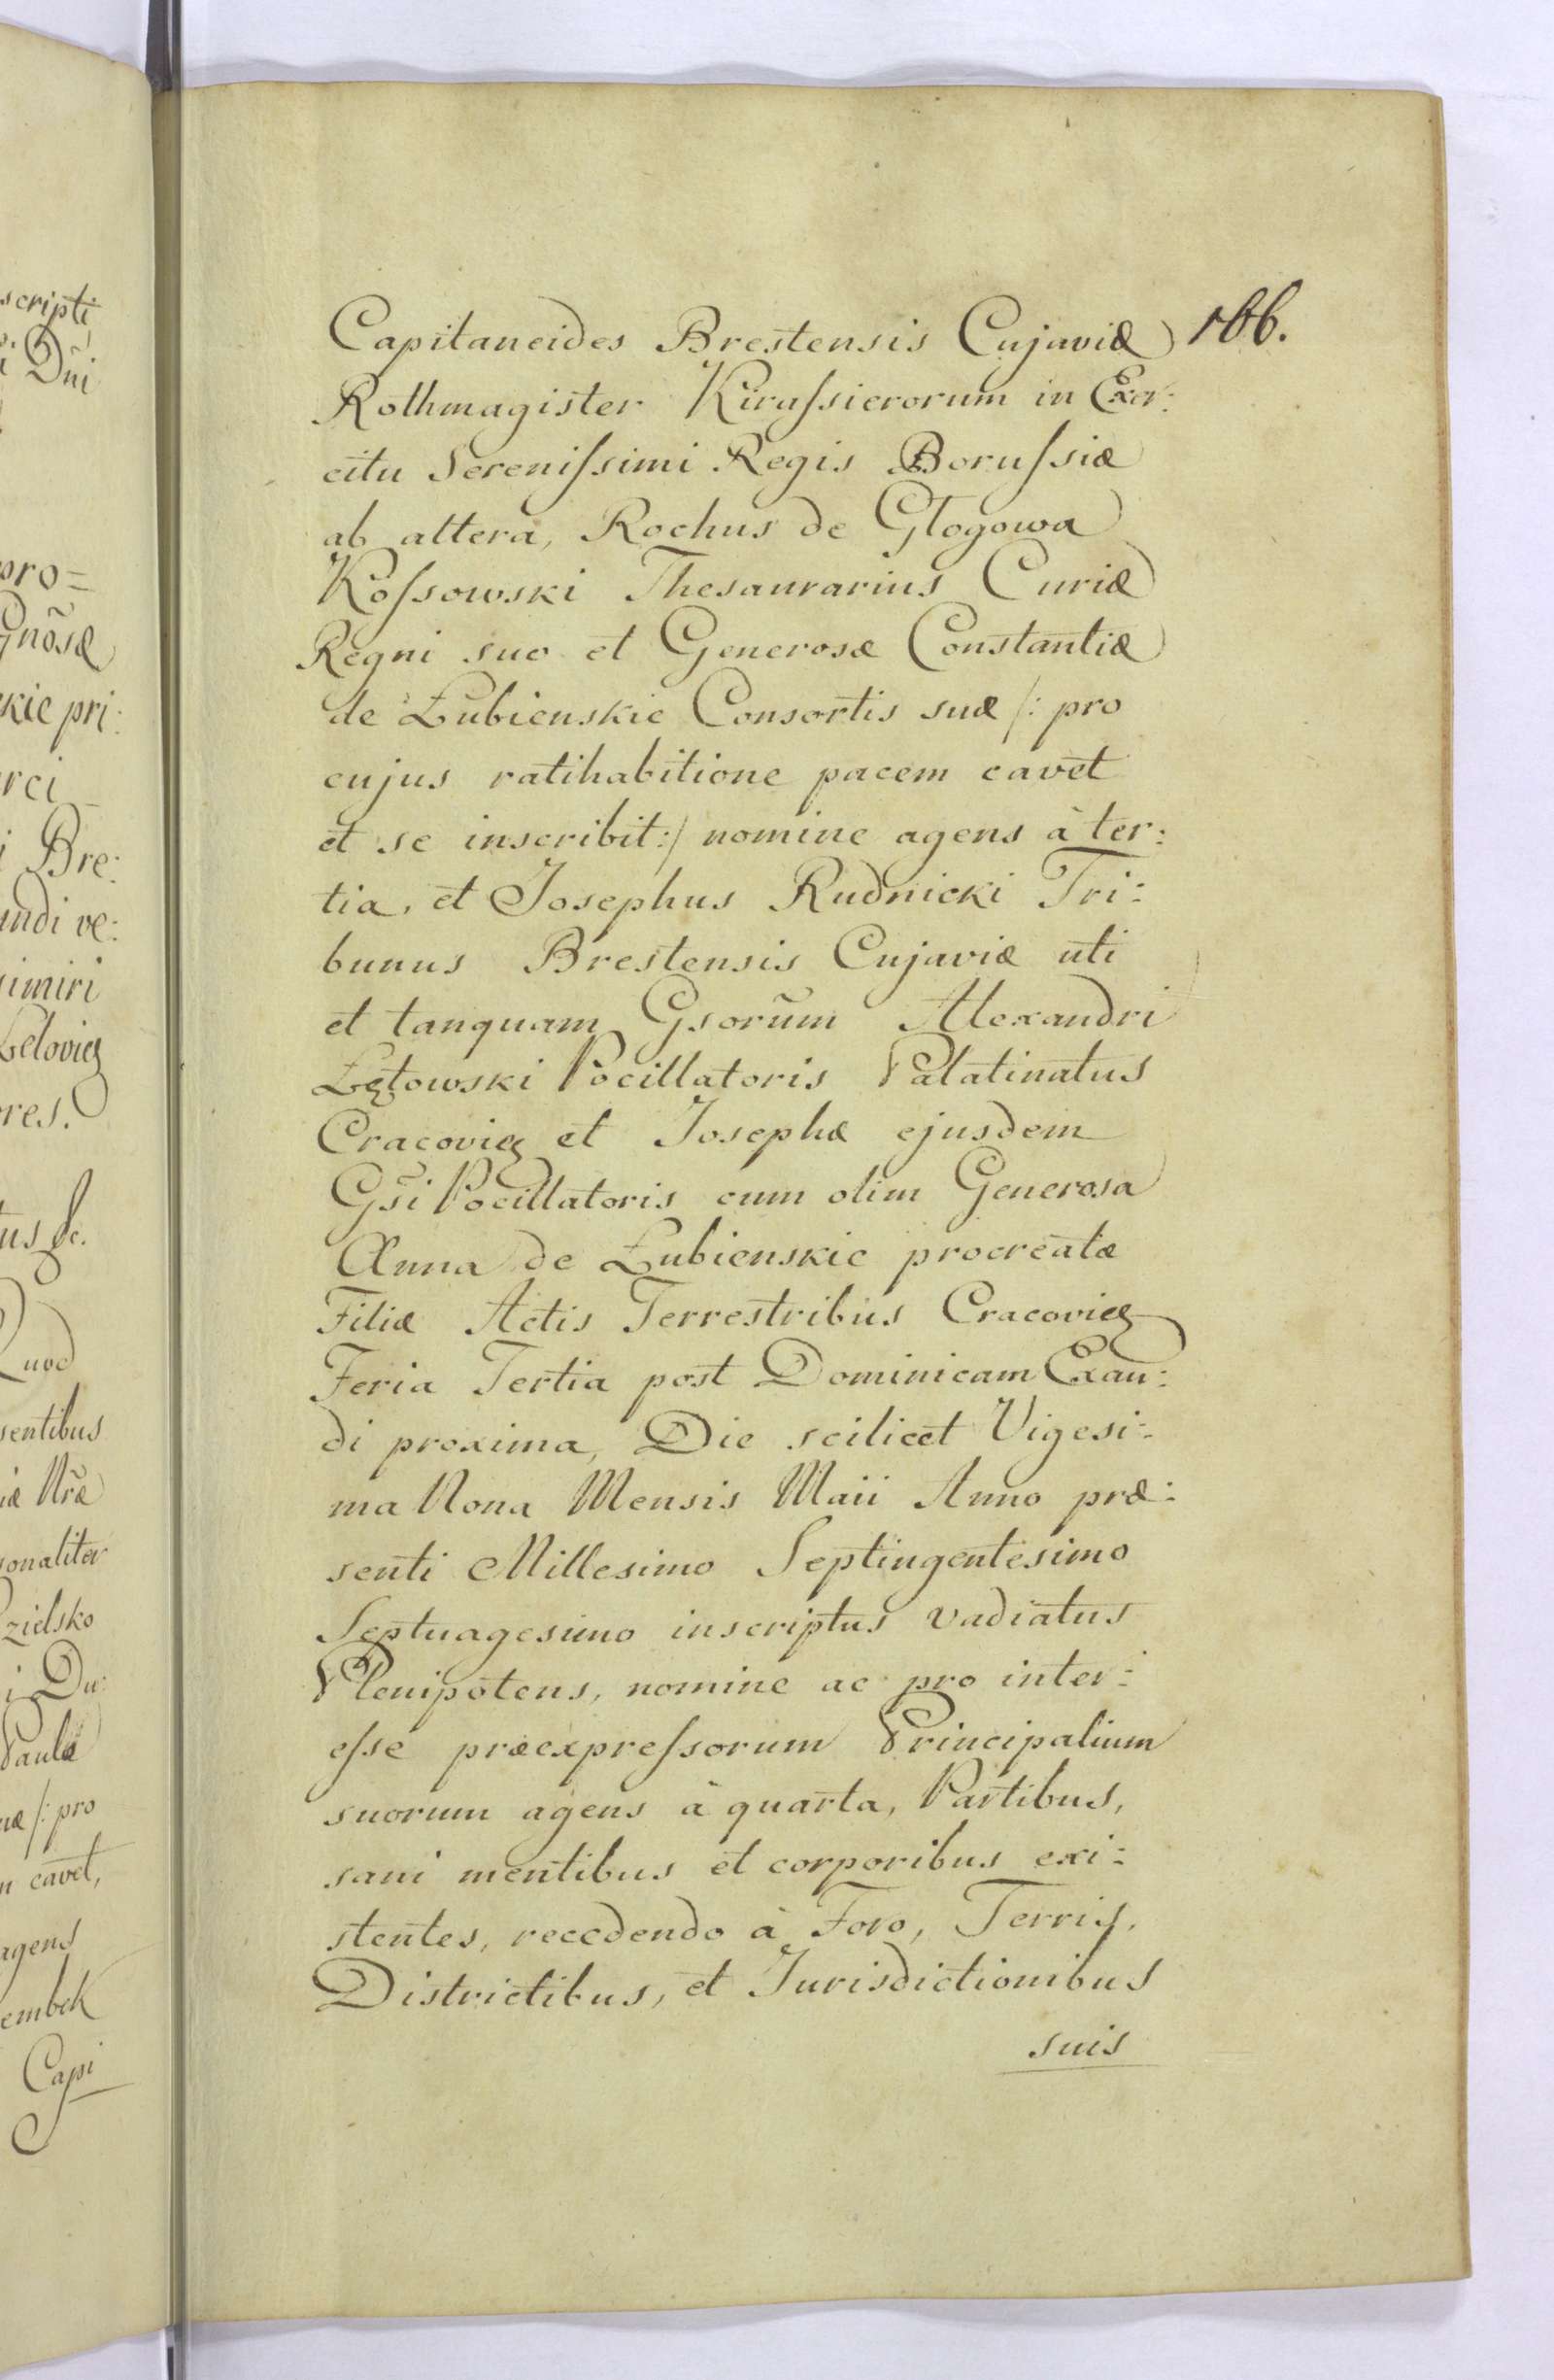 Capitaneides Brestensis Cujaviæ 166.
Rothmagister Kiraſsierorum in Exer:
citu Sereniſsimi Regis Boruſsiæ
ab altera, Rochus de Głogowa
Koſsowski Thesaurarius Curiæ
Regni suo et Generosæ Constantiæ
de Łubienskie Consortis suæ /: pro
cujus ratihabitione pacem cavet
et se inscribit :/ nomine agens à ter:
tia, et Josephus Rudnicki Tri:
bunus Brestensis Cujaviæ uti
et tanquam Gsorũm Alexandri
Łętowski Pocillatoris Palatinatus
Cracovię et Josephæ ejusdem
Gs̃i Pocillatoris cum olim Generosa
Anna de Łubienskie procreatæ
Filiæ Actis Terrestribus Cracovię
Feria Tertia post Dominicam Exau:
di proxima, Die scilicet Vigesi:
ma Nona Mensis Maii Anno præ:
senti Millesimo Septingentesimo
Septuagesimo inscriptus vadiatus
Plenipotens, nomine ac pro inter:
eſse præexpreſsorum Principalium
suorum agens à quarta, Partibus,
sani mentibus et corporibus exi:
stentes, recedendo à Foro, Terris,
Districtibus, et Jurisdictionibus
suis
scripti
Dñi
pro=
Gnõsæ
skie pri:
rci
Bre:
undi ve:
simiri
Lelovię
res.
tus &c.
Quod
sentibus
iæ Nræ̃
sonaliter
zielsko
Du:
Paulæ
uæ /: pro
m cavet,
agens
embek
Capi